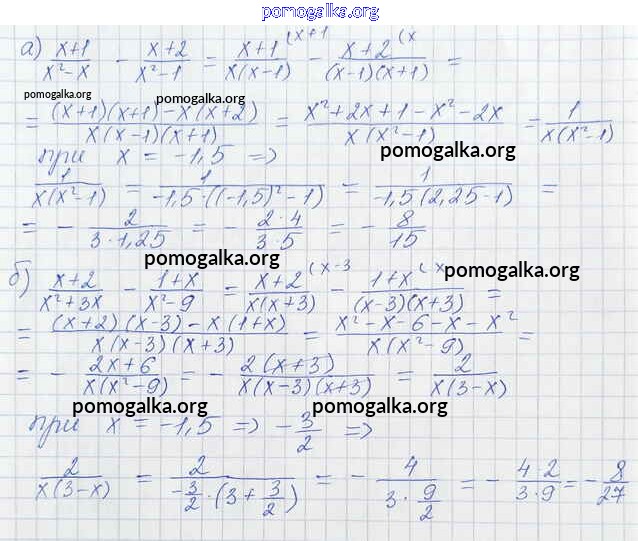 pomogalka.org
а) (x+1)/(x²-x) - (x+2)/(x²-1) = (x+1)/(x(x-1)) (x+1 - (x+2)/((x-1)(x+1)) (x =
pomogalka.org pomogalka.org
= ((x+1)(x+1)-x(x+2))/(x(x-1)(x+1)) = (x²+2x+1-x²-2x)/(x(x²-1)) = 1/(x(x²-1))
при x = -1,5 => pomogalka.org
1/(x(x²-1)) = 1/(-1,5·((-1,5)²-1)) = 1/(-1,5(2,25-1)) =
= - 2/(3·1,25) = - (2·4)/(3·5) = - 8/15
pomogalka.org pomogalka.org
б) (x+2)/(x²+3x) - (1+x)/(x²-9) = (x+2)/(x(x+3)) (x-3 - (1+x)/((x-3)(x+3)) (x =
= ((x+2)(x-3)-x(1+x))/(x(x-3)(x+3)) = (x²-x-6-x-x²)/(x(x²-9)) =
= - (2x+6)/(x(x²-9)) = - (2(x+3))/(x(x-3)(x+3)) = 2/(x(3-x))
pomogalka.org pomogalka.org
при x = -1,5 => - 3/2 =>
2/(x(3-x)) = 2/(-3/2·(3+3/2)) = - 4/(3·9/2) = - (4·2)/(3·9) = - 8/27